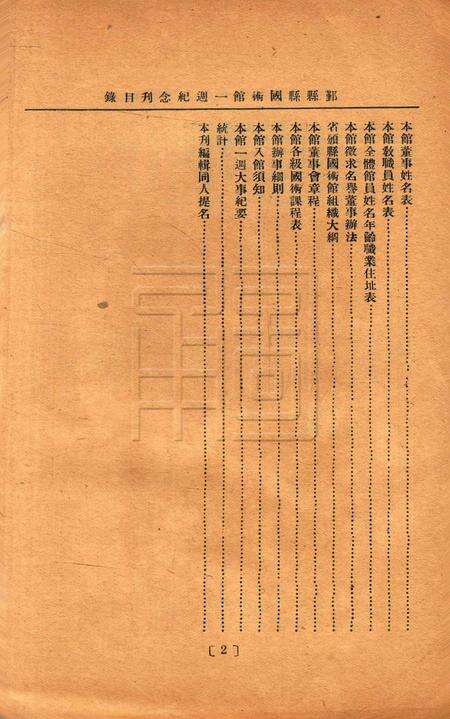 鄞縣縣國術館一週紀念刊目錄
本館董事姓名表
本館敎職員姓名表
本館全體館員姓名年齡職業住址表
本館徵求名譽董事辦法
省頒縣國術館組織大綱
本館董事會章程
本館各級國術課程表
本館辦事細則
本館入館須知
本館一週大事紀要
統計
本刊編輯同人提名
〔2〕